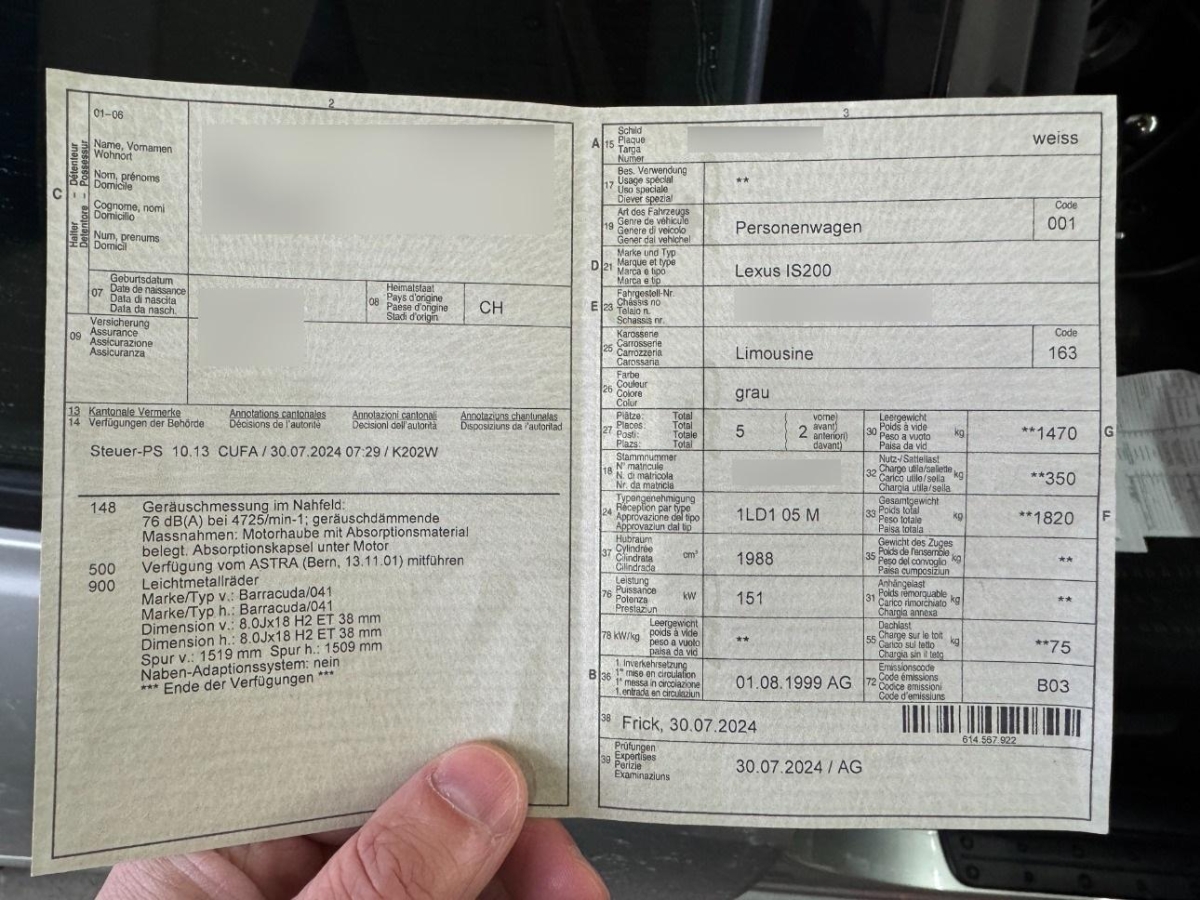 2
01–06
C
Halter – Détenteur
Detentore – Possessur
Name, Vornamen
Wohnort
Nom, prénoms
Domicile
Cognome, nomi
Domicilio
Num, prenums
Domicil
07
Geburtsdatum
Date de naissance
Data di nascita
Data da nasch.
08
Heimatstaat
Pays d'origine
Paese d'origine
Stadi d'origin
CH
09
Versicherung
Assurance
Assicurazione
Assicuranza
13 Kantonale Vermerke Annotations cantonales Annotazioni cantonali Annotaziuns chantunalas
14 Verfügungen der Behörde Décisions de l'autorité Decisioni dell'autorità Disposiziuns da l'autoritad
Steuer-PS 10.13 CUFA / 30.07.2024 07:29 / K202W
148 Geräuschmessung im Nahfeld:
76 dB(A) bei 4725/min-1; geräuschdämmende
Massnahmen: Motorhaube mit Absorptionsmaterial
belegt. Absorptionskapsel unter Motor
500 Verfügung vom ASTRA (Bern, 13.11.01) mitführen
900 Leichtmetallräder
Marke/Typ v.: Barracuda/041
Marke/Typ h.: Barracuda/041
Dimension v.: 8.0Jx18 H2 ET 38 mm
Dimension h.: 8.0Jx18 H2 ET 38 mm
Spur v.: 1519 mm Spur h.: 1509 mm
Naben-Adaptionssystem: nein
*** Ende der Verfügungen ***
3
A 15
Schild
Plaque
Targa
Numer
weiss
17
Bes. Verwendung
Usage spécial
Uso speciale
Diever spezial
**
19
Art des Fahrzeugs
Genre de véhicule
Genere di veicolo
Gener dal vehichel
Personenwagen
Code
001
D 21
Marke und Typ
Marque et type
Marca e tipo
Marca e tip
Lexus IS200
E 23
Fahrgestell-Nr.
Châssis no
Telaio n.
Schassis nr.
25
Karosserie
Carrosserie
Carrozzeria
Carossaria
Limousine
Code
163
26
Farbe
Couleur
Colore
Colur
grau
27
Plätze: Total
Places: Total
Posti: Totale
Plazs: Total
5
2
vorne)
avant)
anteriori)
davant)
30
Leergewicht
Poids à vide
Peso a vuoto
Paisa da vid
kg
**1470
G
18
Stammnummer
N° matricule
N. di matricola
Nr. da matricla
32
Nutz-/Sattellast
Charge utile/sellette
Carico utile/sella
Chargia utila/sella
kg
**350
24
Typengenehmigung
Réception par type
Approvazione del tipo
Approvaziun dal tip
1LD1 05 M
33
Gesamtgewicht
Poids total
Peso totale
Paisa totala
kg
**1820
F
37
Hubraum
Cylindrée
Cilindrata
Cilindrada
cm³
1988
35
Gewicht des Zuges
Poids de l'ensemble
Peso del convoglio
Paisa cumposiziun
kg
**
76
Leistung
Puissance
Potenza
Prestaziun
kW
151
31
Anhängelast
Poids remorquable
Carico rimorchiato
Chargia annexa
kg
**
78 kW/kg
Leergewicht
poids à vide
peso a vuoto
paisa da vid
**
55
Dachlast
Charge sur le toit
Carico sul tetto
Chargia sin il tetg
kg
**75
B 36
1. Inverkehrsetzung
1re mise en circulation
1a messa in circolazione
1. entrada en circulaziun
01.08.1999 AG
72
Emissionscode
Code émissions
Codice emissioni
Code d'emissiuns
B03
38 Frick, 30.07.2024
614 567 922
39
Prüfungen
Expertises
Perizie
Examinaziuns
30.07.2024 / AG